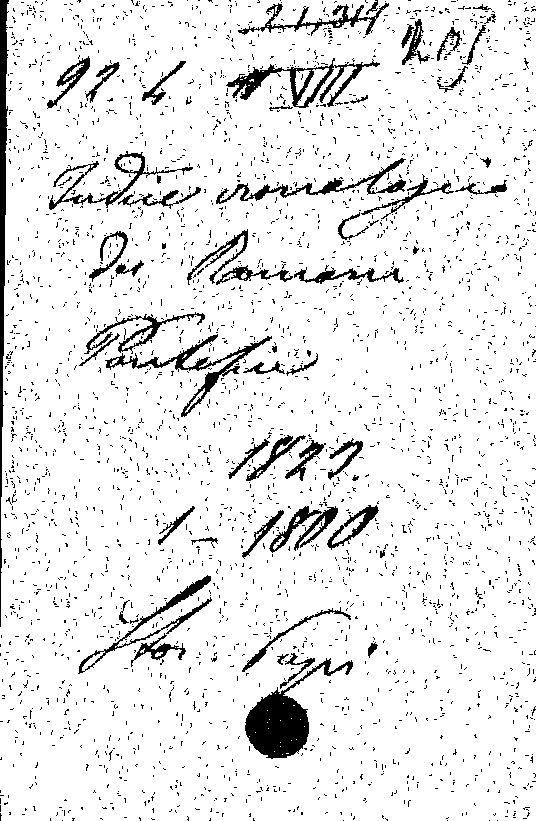 21,314
205
92. 4. VIII
Indice cronologico
dei Romani
Pontefici
1823.
1 - 1800.
Stor. Papi